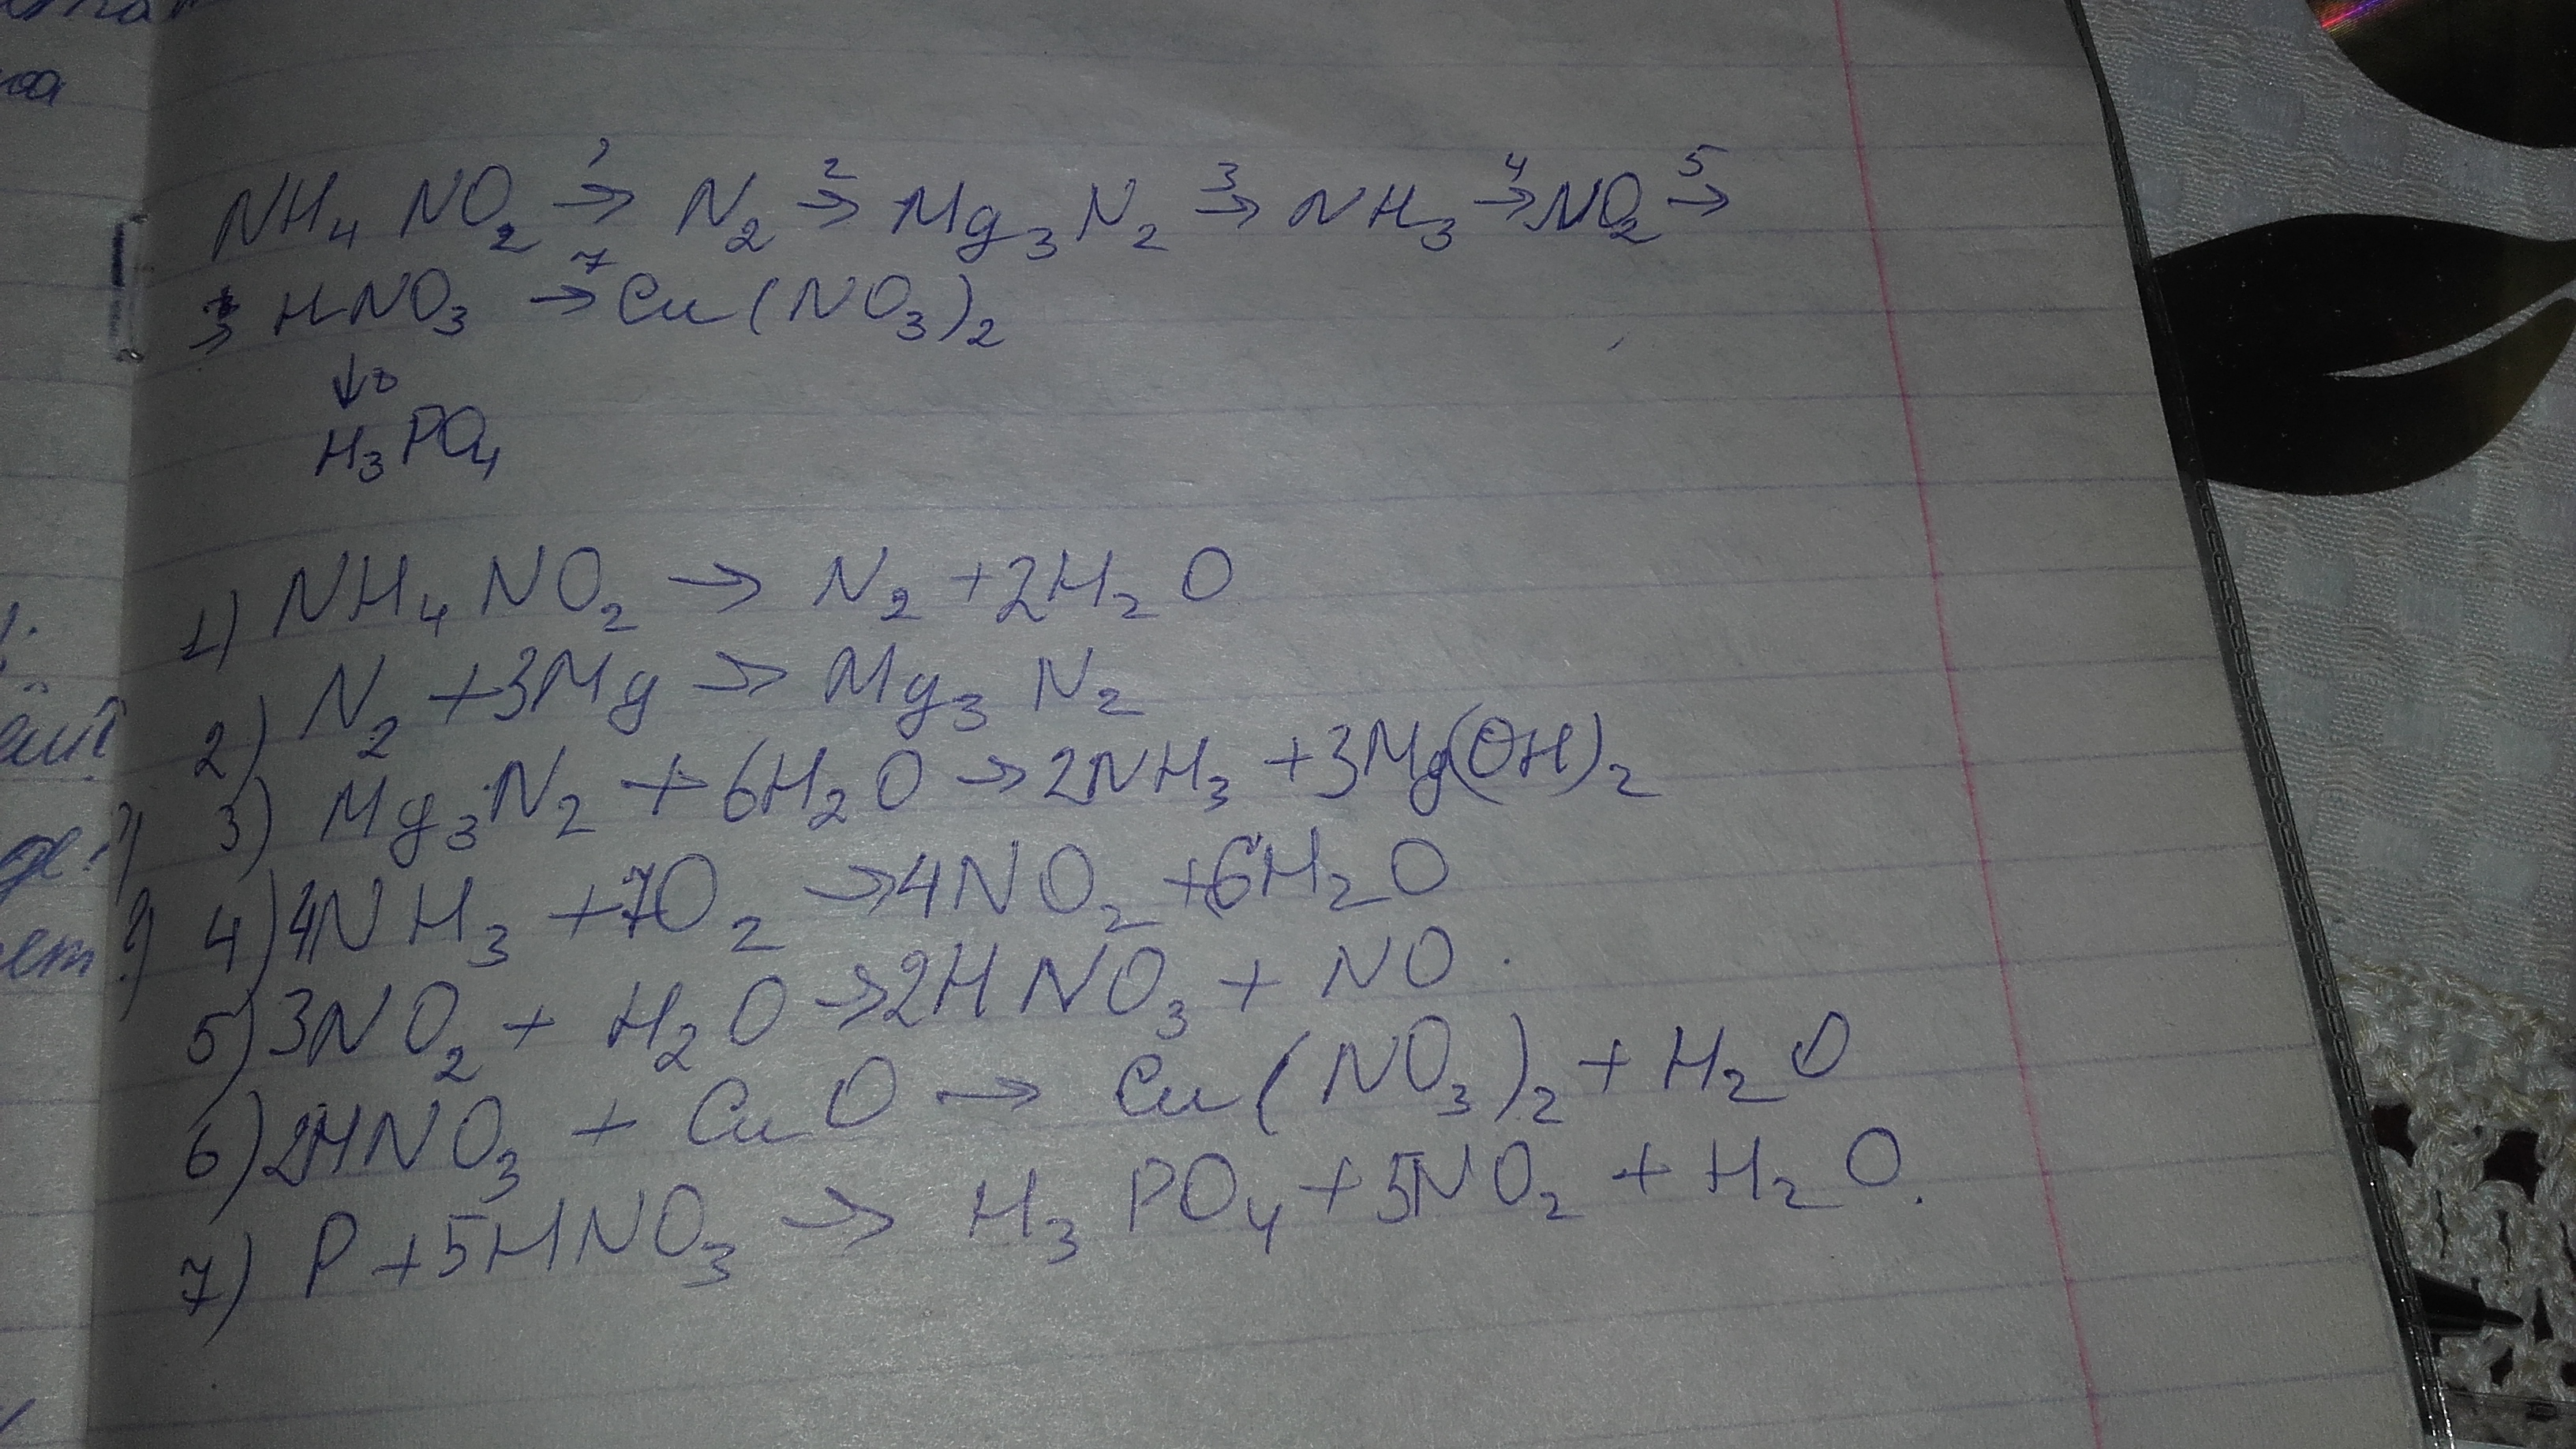 NH₄NO₂ →¹ N₂ →² Mg₃N₂ →³ NH₃ →⁴ NO₂ →⁵
→ HNO₃ →⁷ Cu(NO₃)₂
↓
H₃PO₄
1) NH₄NO₂ → N₂ + 2H₂O
2) N₂ + 3Mg → Mg₃N₂
3) Mg₃N₂ + 6H₂O → 2NH₃ + 3Mg(OH)₂
4) 4NH₃ + 7O₂ → 4NO₂ + 6H₂O
5) 3NO₂ + H₂O → 2HNO₃ + NO.
6) 2HNO₃ + CuO → Cu(NO₃)₂ + H₂O
7) P + 5HNO₃ → H₃PO₄ + 5NO₂ + H₂O.